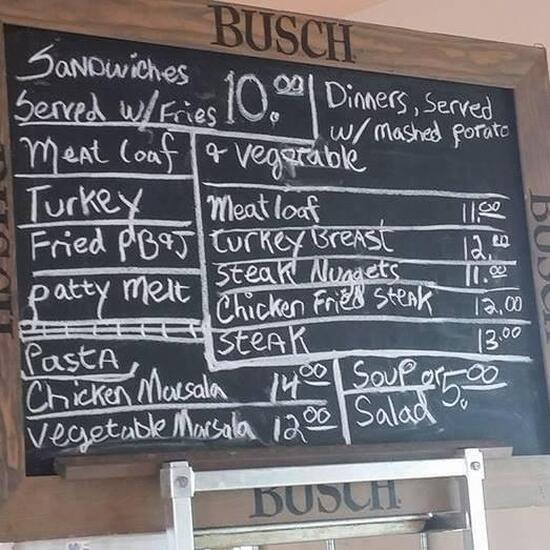 BUSCH
Sandwiches
Served w/Fries 10.00
Meat loaf
Turkey
Fried PB&J
patty melt
Dinners, Served
w/ mashed potato
& vegetable
Meatloaf 11.00
turkey Breast 12.00
Steak Nuggets 11.00
Chicken Fried Steak 12.00
Steak 13.00
Pasta
Chicken Marsala 14.00
Vegetable Marsala 12.00
Soup or
Salad 5.00
BUSCH